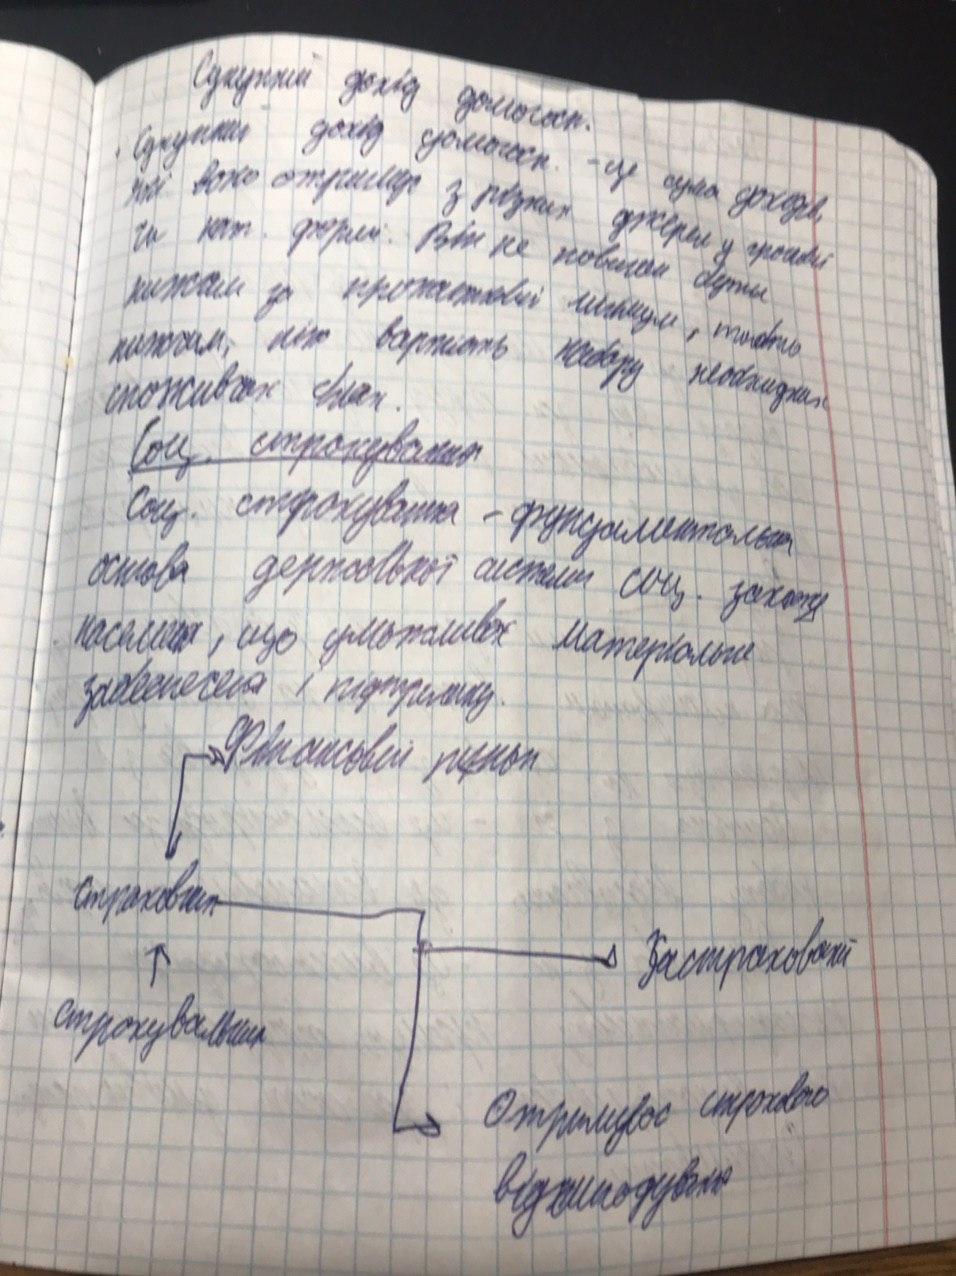 Сукупний дохід домогосп.
Сукупний дохід домогосп. - це сума доходів,
які воно отримує з різних джерел у грошовій
чи нат. формі. Він не повинен бути
нижчим за прожитковий мінімум, тобто
нижчим, ніж вартість набору необхідних
споживчих благ.
Соц. страхування
Соц. страхування - фундаментальна
основа державної системи соц. захисту
населення, що уможливлює матеріальне
забезпечення і підтримку.
Фінансовий ринок
Страховик
Застрахований
Страхувальник
Отримувач страхового
відшкодування